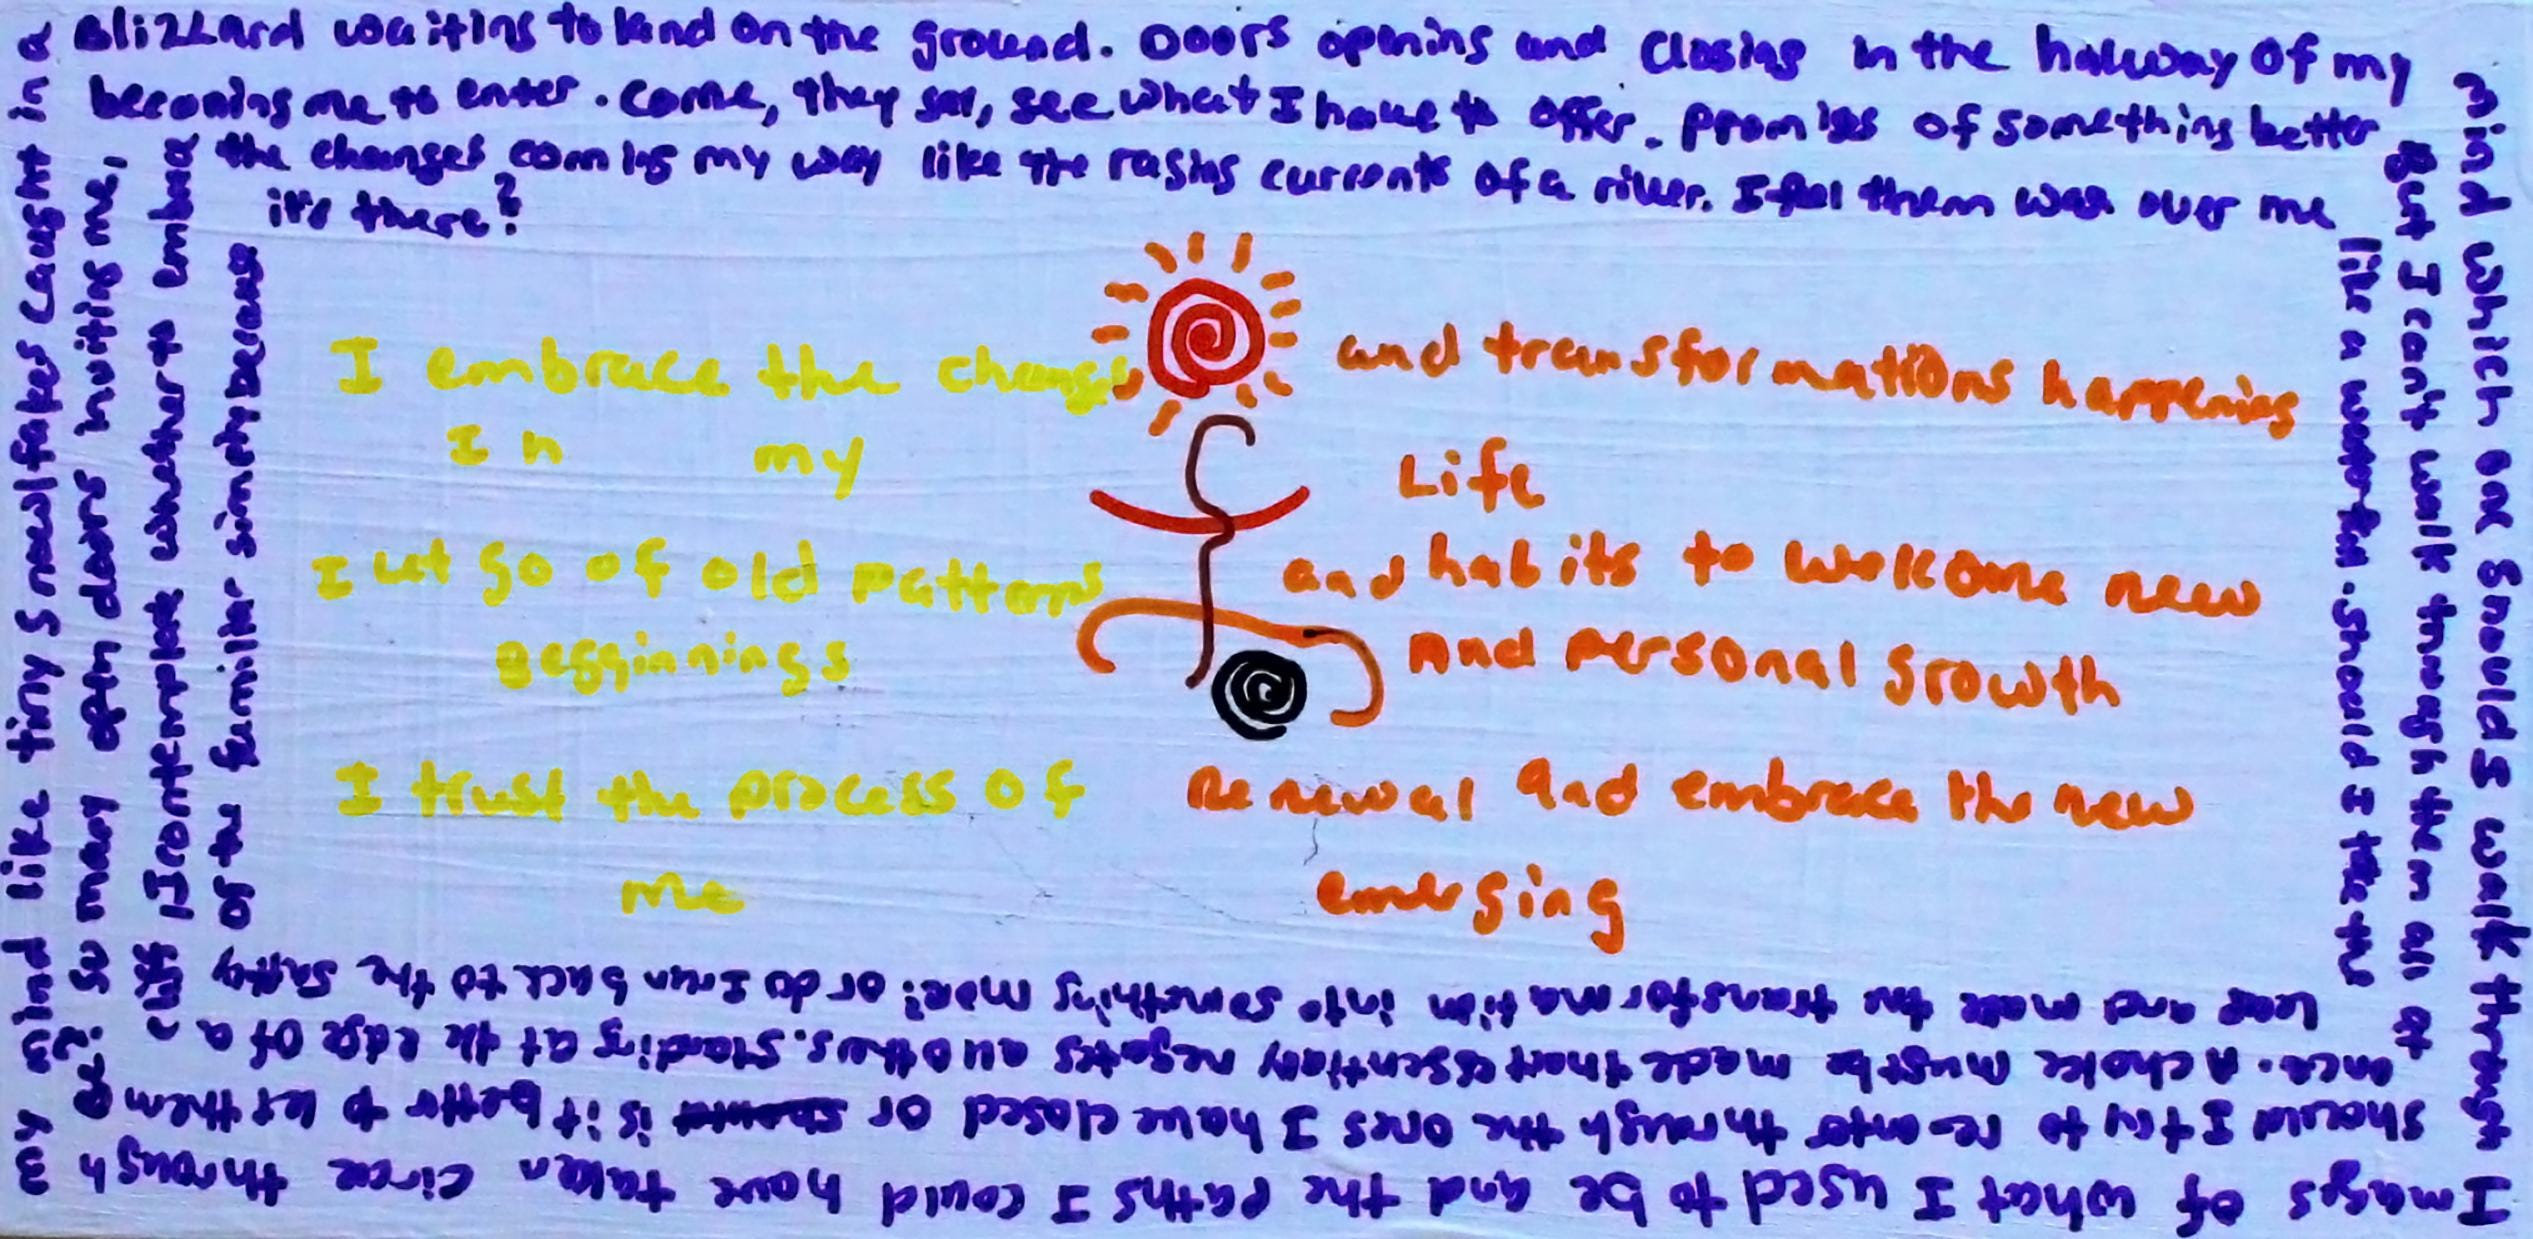 Images of what I used to be and the paths I could have taken circle through
my mind like tiny snowflakes caught in a
Blizzard waiting to land on the ground. Doors opening and closing in the hallway of my
mind which one should I walk through
should I try to re-enter through the ones I have closed or is it better to let them
so many open doors inviting me,
becoming me to enter. Come, they say, see what I have to offer. Promises of something better
But I can't walk through them all at
once. A choice must be made that essentially negates all others. Standing at the edge of a
cliff I contemplate whether to embrace
the changes coming my way like the raging currents of a river. I feel them wash over me
like a waterfall. Should I take the
leap and make the transformation into something more? or do I run back to the safety
of the familiar simply because
it's there?
I embrace the changes and transformations happening
In my Life
I let go of old patterns and habits to welcome new
Begginnings And personal growth
I trust the process of Renewal and embrace the new
me emerging